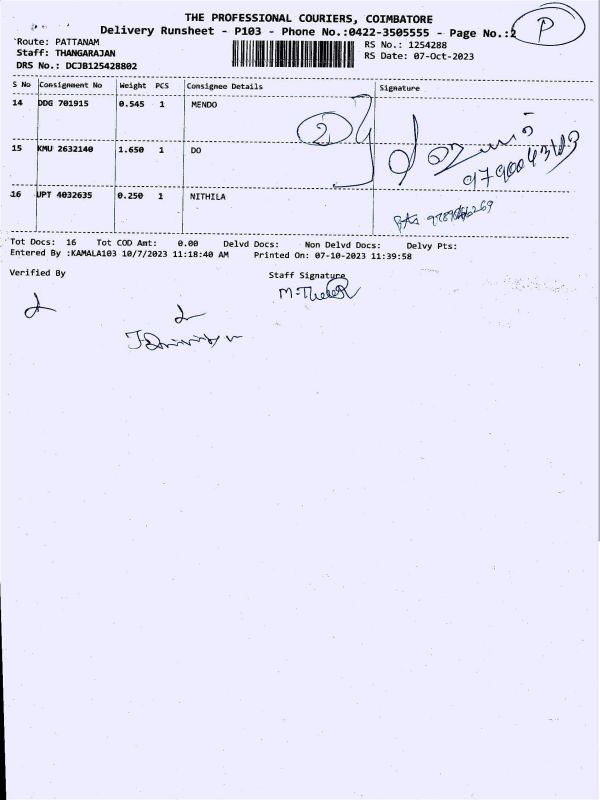 THE PROFESSIONAL COURIERS, COIMBATORE
Delivery Runsheet - P103 - Phone No.:0422-3505555 - Page No.:2
P
Route: PATTANAM
RS No.: 1254288
Staff: THANGARAJAN
RS Date: 07-Oct-2023
DRS No.: DCJB125428802
S No Consignment No Weight PCS Consignee Details Signature
14 DDG 701915 0.545 1 MENDO
2
15 KMU 2632140 1.650 1 DO
16 UPT 4032635 0.250 1 NITHILA
Tot Docs: 16 Tot COD Amt: 0.00 Delvd Docs: Non Delvd Docs: Delvy Pts:
Entered By :KAMALA103 10/7/2023 11:18:40 AM Printed On: 07-10-2023 11:39:58
Verified By Staff Signature